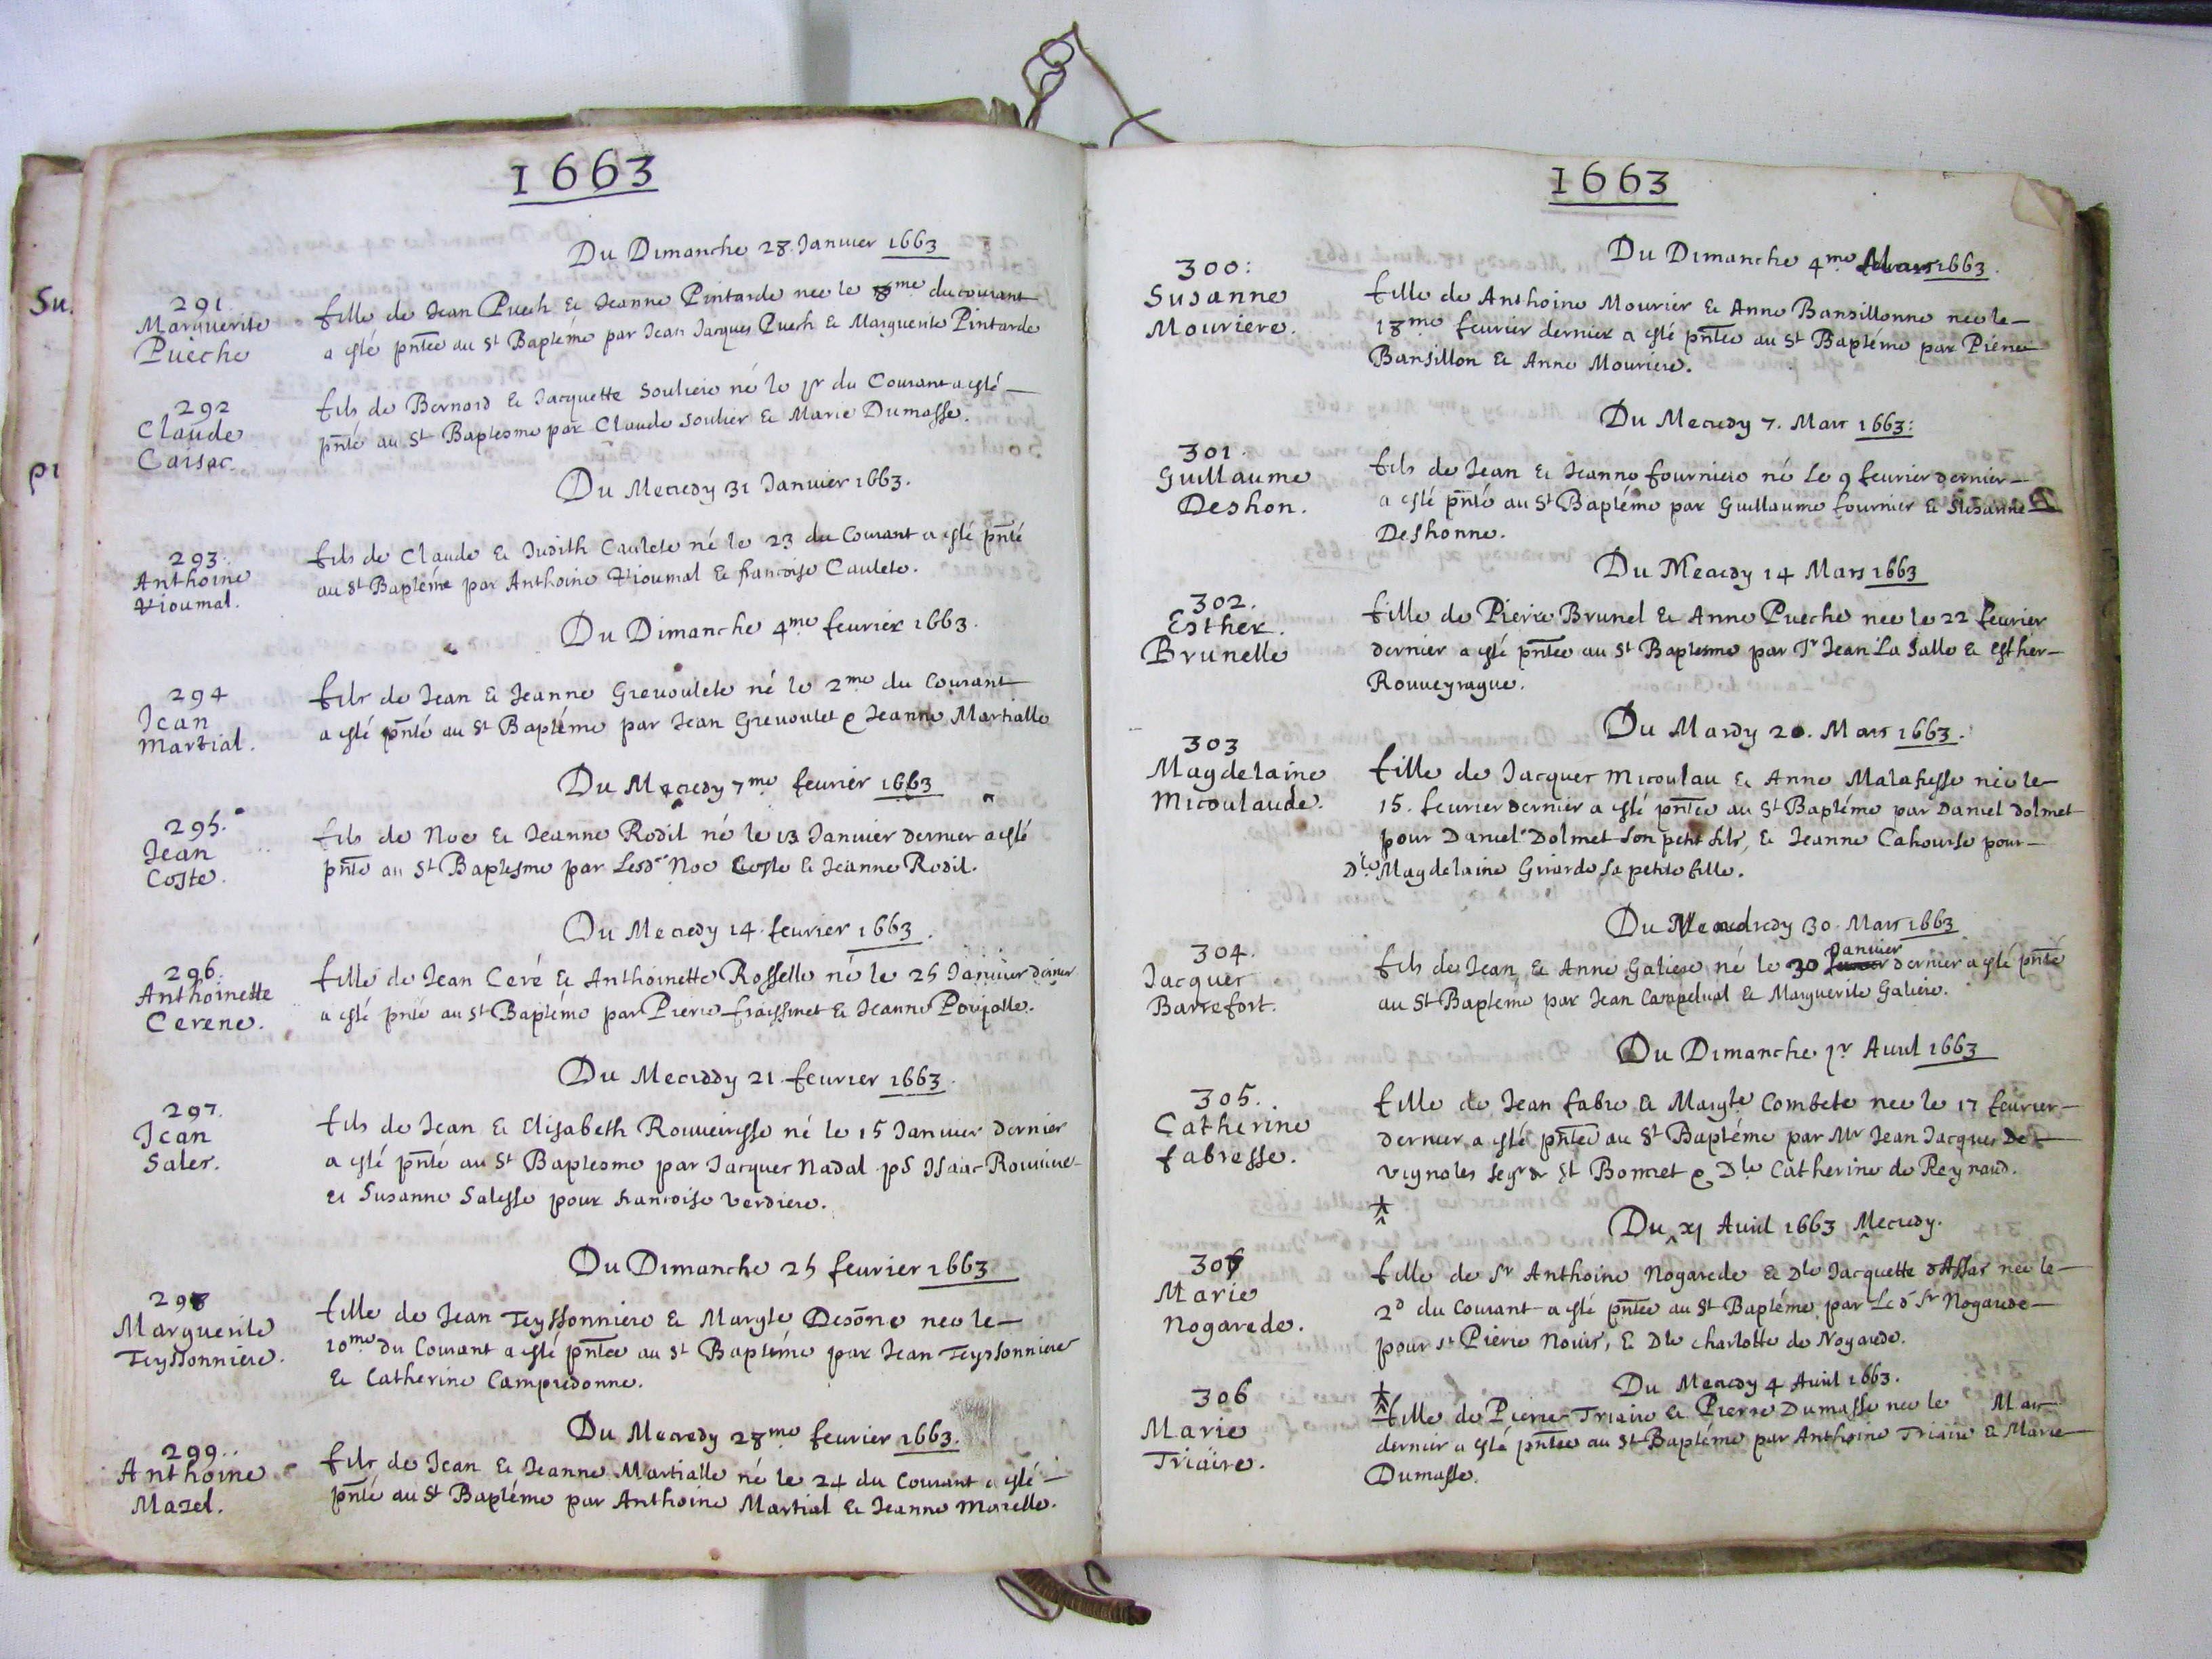 Su.
pi
1663
Du Dimanche 28. Januier 1663
291.
Marguerite
Puèche
fille de Jean Puech & Jeanne Pintarde nee le 8me du courant
a esté pñtee au St Baptéme par Jean Jacques Puech & Marguerite Pintarde
292
Claude
Caisac.
fils de Bernard & Jacquette Souliere né le pr du Courant a esté
pñté au St Baptesme par Claude Soulier & Marie Dumasse.
Du Mecredy 31 Januier 1663.
293.
Anthoine
Vioumal.
fils de Claude & Judith Caulete né le 23 du Courant a esté pñté
au St Baptéme par Anthoine Vioumal & francoise Caulete.
Du Dimanche 4me feurier 1663.
294
Jean
Martial.
fils de Jean & Jeanne Greuoulete né le 2me du Courant
a esté pñté au St Baptéme par Jean Greuoulet & Jeanne Martialle
Du Mecredy 7me feurier 1663
295.
Jean
Coste.
fils de Noe & Jeanne Rodil né le 13 Januier dernier a esté
pñté au St Baptesme par Lesd. Noe Coste & Jeanne Rodil.
Du Mecredy 14. feurier 1663.
296.
Anthoinette
Cerene.
fille de Jean Ceré & Anthoinette Rosselle né le 25 Januier dernier
a esté pñté au St Baptéme par Pierre fraissinet & Jeanne Poujolle.
Du Mecredy 21. feurier 1663.
297.
Jean
Sales.
fils de Jean & Elisabeth Rouueiresse né le 15 Januier dernier
a esté pñté au St Baptesme par Jacques Nadal pr Isaac Rouuiere
& Susanne Salesse pour francoise Verdiere.
Du Dimanche 25 feurier 1663
298
Marguerite
Teyssonniere.
fille de Jean Teyssonniere & Margte Desõne nee le
10me du Courant a esté pñtee au St Baptéme par Jean Teyssonniere
& Catherine Campredonne.
Du Mecredy 28me feurier 1663.
299.
Anthoine
Mazel.
fils de Jean & Jeanne Martialle né le 24 du Courant a esté
pñté au St Baptéme par Anthoine Martial & Jeanne Mazelle.
1663
Du Dimanche 4me Mars 1663.
300:
Susanne
Mouriere.
fille de Anthoine Mourier & Anne Bansillonne nee le
18me feurier dernier a esté pñtee au St Baptéme par Pierre
Bansillon & Anne Mouriere.
Du Mecredy 7. Mars 1663:
301.
Guillaume
Deshon.
fils de Jean & Jeanne fourniere né le 9 feurier dernier
a esté pñté au St Baptéme par Guillaume fournier & Susanne
Deshonne.
Du Mecredy 14 Mars 1663
302.
Esther.
Brunelle
fille de Pierre Brunel & Anne Pueche nee le 22 feurier
dernier a esté pñtee au St Baptesme par Sr Jean La Salle & Esther
Rouueyrague.
Du Mardy 20. Mars 1663.
303
Magdelaine
Micoulaude.
fille de Jacques Micoulau & Anne Malafosse née le
15. feurier dernier a esté pñtee au St Baptéme par Daniel Dolmet
pour Daniel Dolmet son petit fils, & Jeanne Cahourse pour
Dle Magdelaine Girarde sa petite fille.
Du Vendredy 30. Mars 1663
304.
Jacques
Barrefort.
Januier
fils de Jean & Anne Galiere né le 30 feurier dernier a esté pñté
au St Baptéme par Jean Campelual & Marguerite Galiere.
Du Dimanche pr Auril 1663
305.
Catherine
fabresse.
fille de Jean fabre & Margte Combete nee le 17 feurier
dernier a esté pñtee au St Baptéme par Mr Jean Jacques De
vignoles segr de St Bonnet & Dle Catherine de Reynaud.
Du xj Auril 1663 Mecredy.
307
Marie
Nogarede.
fille de Sr Anthoine Nogarede & Dle Jacquette d'Assas née le
2d du Courant a esté pñtee au St Baptéme par Led Sr Nogarede
pour Sr Pierre Nouis, & Dle Charlotte de Nogarede.
Du Mecredy 4 Auril 1663.
306
Marie
Triaire.
fille de Pierre Triaire & Pierre Dumasse nee le Mars
dernier a esté pñtee au St Baptéme par Anthoine Triaire & Marie
Dumasse.